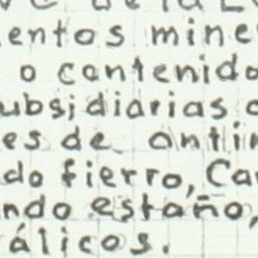 de la L
entos mine
o contenido
ubsidiarias
es de anti
do fierro, Ca
ndo estaño,
álicos.